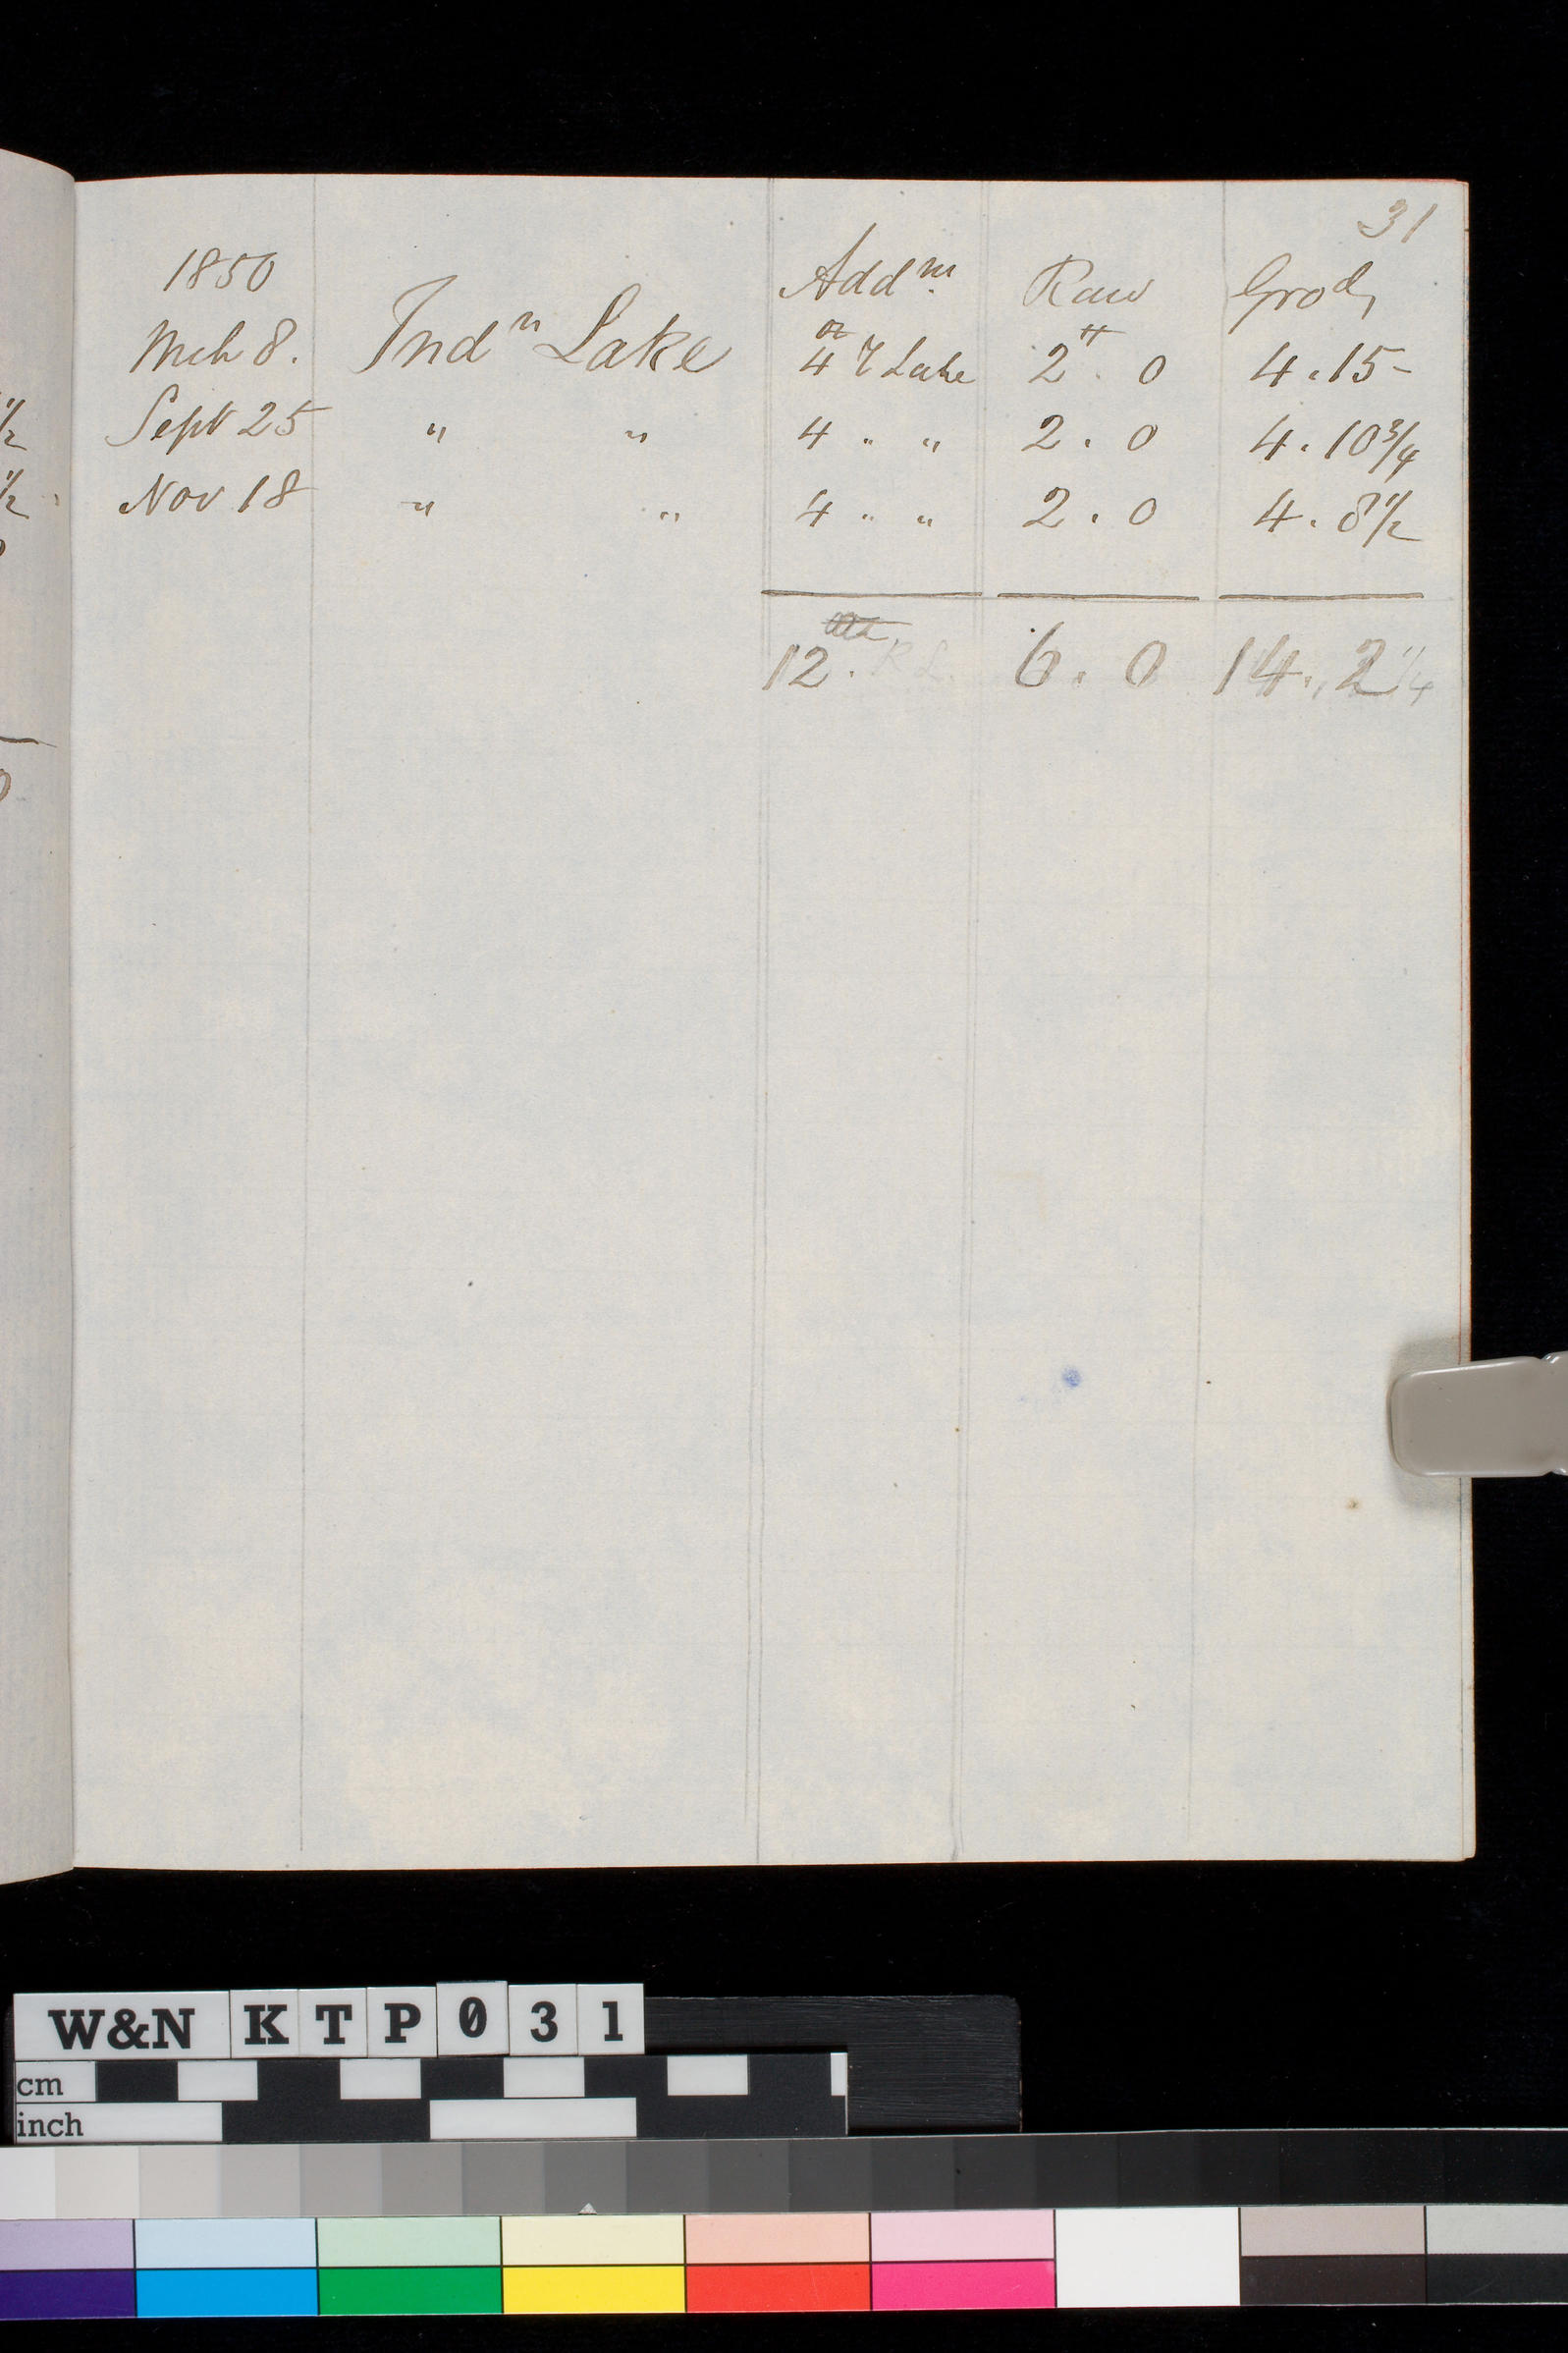 31
1850 Addn. Raw Grod,
Mch 8. Indn Lake 4 oz Lake 2 tt. 0 4.15-
Sept 25 " " 4 " " 2.0 4.10 3/4
Nov 18 " " 4 " " 2.0 4.8 1/2
12. R L. 6.0 14.2 1/4
W&N KTP031
cm
inch